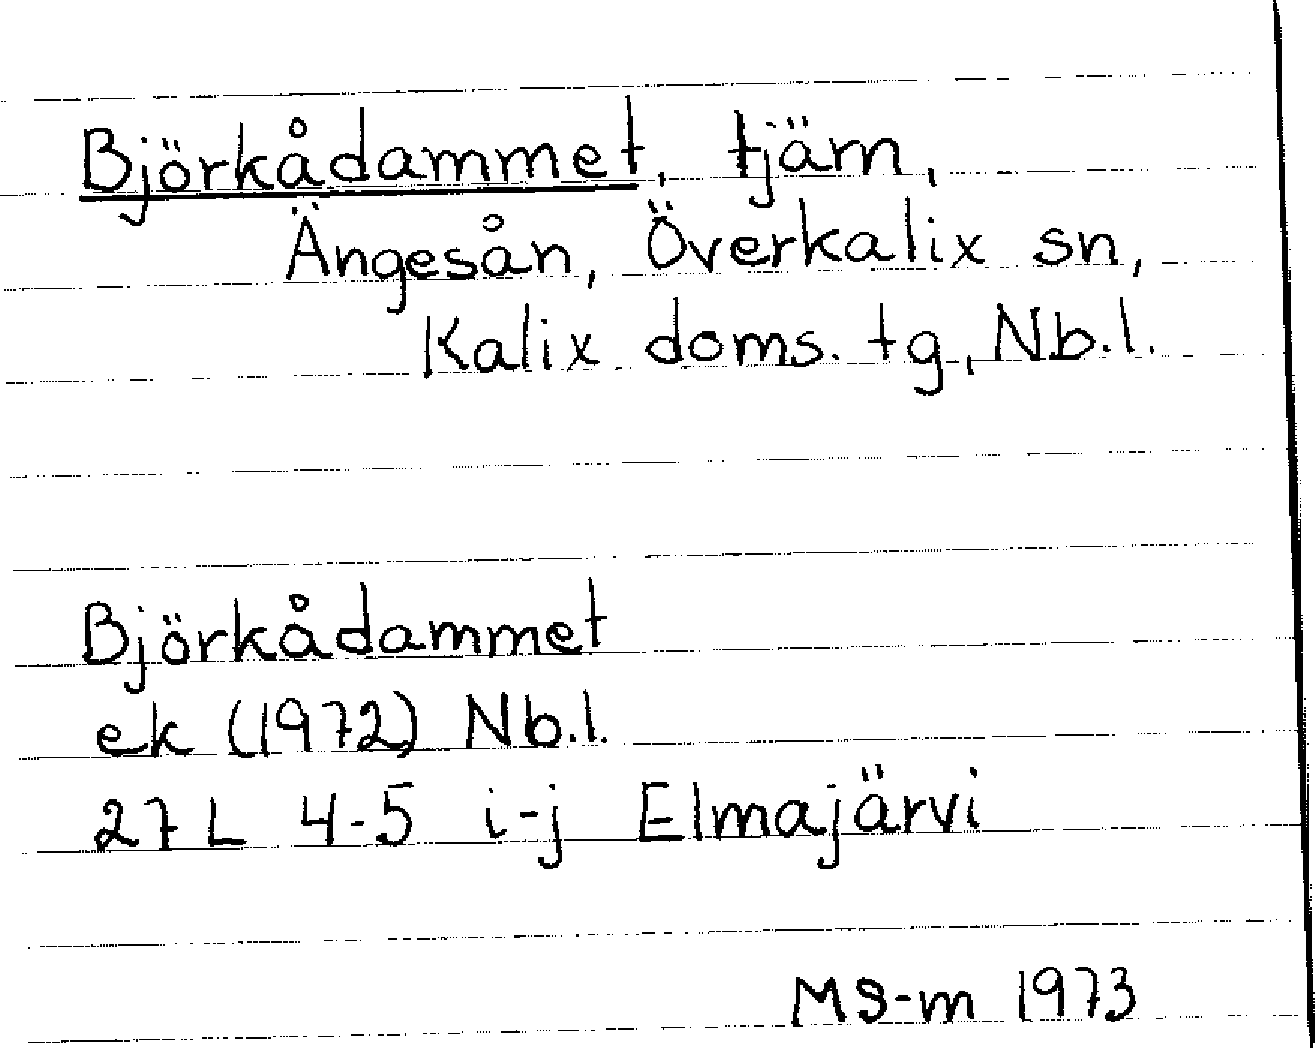 Björkådammet, tjärn,
Ängesån, Överkalix sn,
Kalix doms. tg, Nb.l.
Björkådammet
ek (1972) Nb.l.
27 L 4-5 i-j Elmajärvi
MS-m 1973